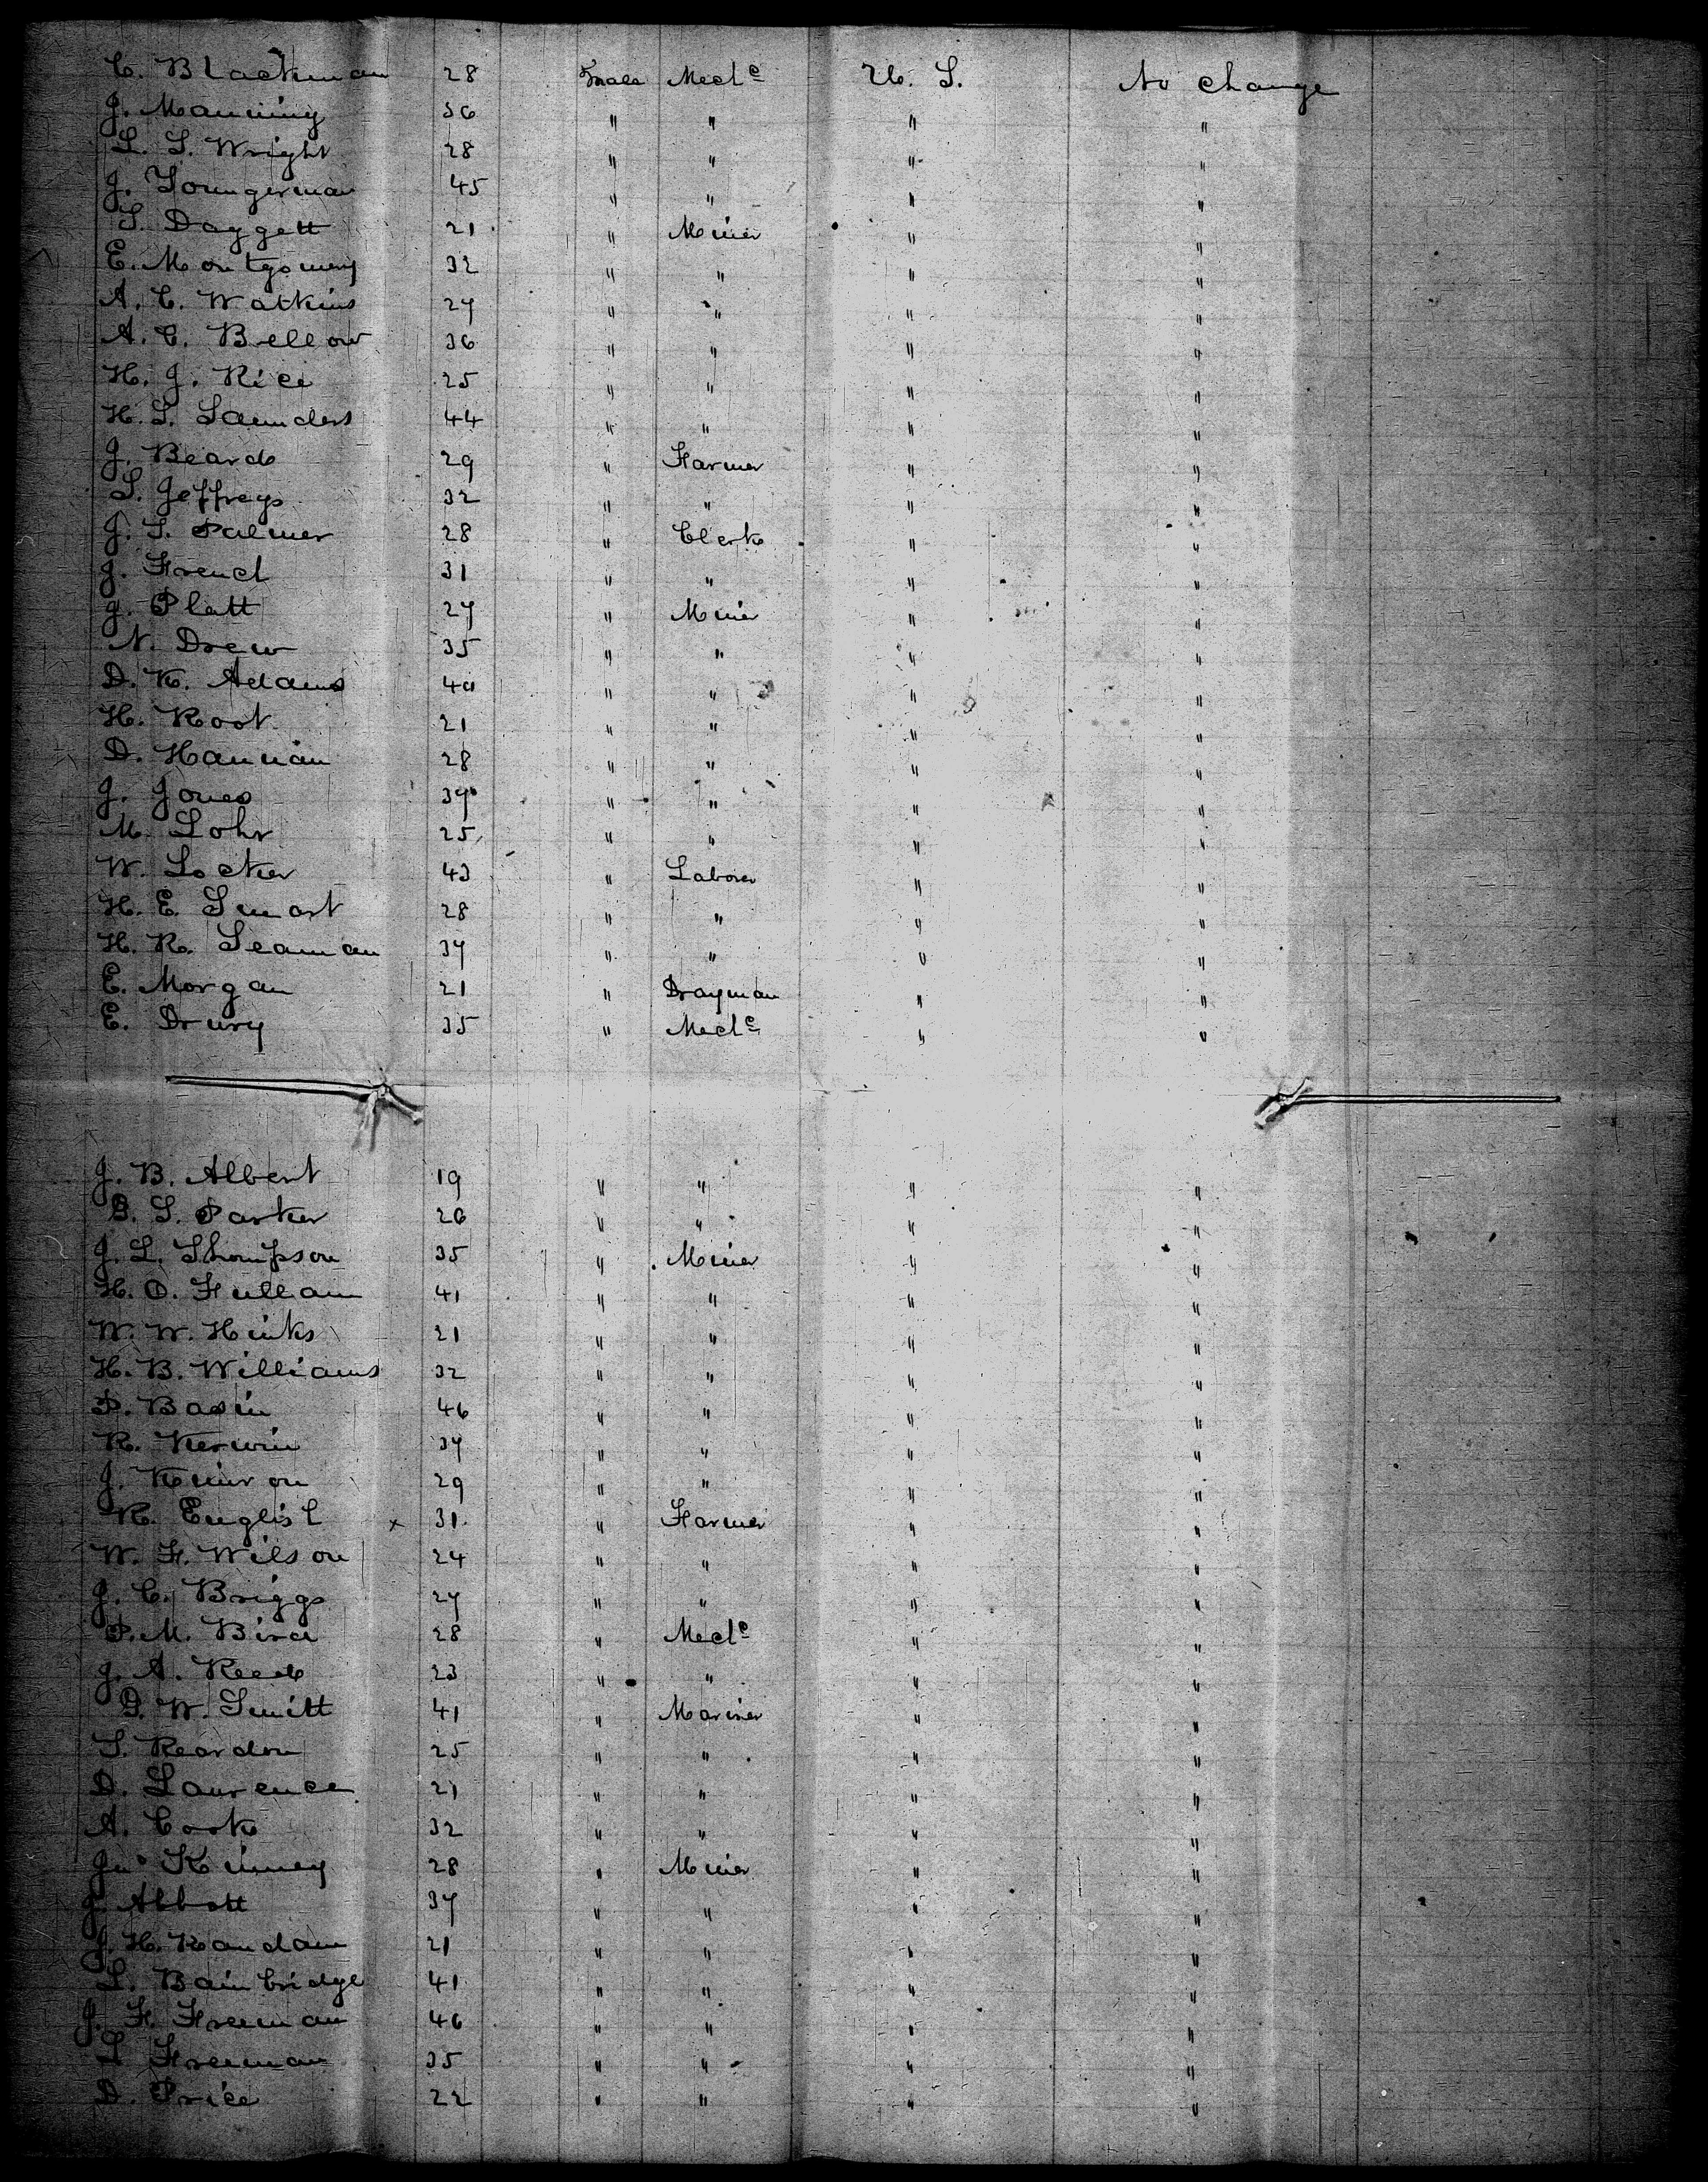 C. Blackman 28 Male Mech^c U. S. No change
J. Manning 36 " " " "
L. S. Wright 28 " " " "
J. Youngerman 45 " " " "
S. Daggett 21 " Miner " "
E. Montgomery 32 " " " "
A. C. Watkins 27 " " " "
A. C. Bellow 36 " " " "
H. J. Rice 25 " " " "
H. S. Saunders 44 " " " "
J. Beard 29 " Farmer " "
S. Jeffreys 32 " " " "
J. S. Palmer 28 " Clerk " "
J. French 31 " " " "
J. Platt 27 " Miner " "
N. Drew 35 " " " "
D. K. Adams 40 " " " "
H. Root 21 " " " "
D. Hannan 28 " " " "
J. Jones 37 " " " "
M. Lohr 25 " " " "
W. Locker 43 " Laborer " "
H. E. Smart 28 " " " "
H. R. Seaman 37 " " " "
E. Morgan 21 " Drayman " "
E. Drury 35 " Mech^c " "
J. B. Albert 19 " " " "
D. S. Parker 26 " " " "
J. L. Thompson 35 " Miner " "
H. O. Fullam 41 " " " "
W. W. Hinks 21 " " " "
H. B. Williams 32 " " " "
P. Basin 46 " " " "
R. Kerwin 37 " " " "
J. 29 " " " "
R. English x 31 " Farmer " "
W. F. Wilson 24 " " " "
J. C. Briggs 27 " " " "
P. M. Bird 28 " Mech^c " "
J. A. Reed 23 " " " "
D. W. Smith 41 " Mariner " "
S. Reardon 25 " " " "
D. Laurence 21 " " " "
A. Cook 32 " " " "
Jn^o Kinney 28 " Miner " "
J. Abbott 37 " " " "
J. H. Randam 21 " " " "
S. Bainbridge 41 " " " "
J. F. Freeman 46 " " " "
S. Freeman 35 " " " "
D. Price 22 " " " "